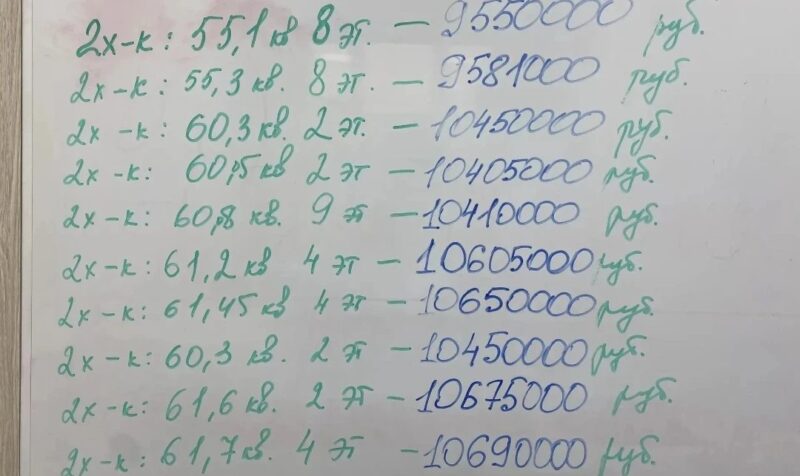 2х-к: 55,1 кв 8 эт. — 9550000 руб.
2х-к: 55,3 кв. 8 эт. — 9581000 руб.
2х-к: 60,3 кв. 2 эт. — 10450000 руб.
2х-к: 60,5 кв 2 эт — 10405000 руб.
2х-к: 60,8 кв. 9 эт — 10410000 руб.
2х-к: 61,2 кв 4 эт — 10605000 руб.
2х-к: 61,45 кв 4 эт — 10650000 руб.
2х-к: 60,3 кв. 2 эт — 10450000 руб.
2х-к: 61,6 кв. 2 эт — 10675000 руб.
2х-к: 61,7 кв. 4 эт — 10690000 руб.